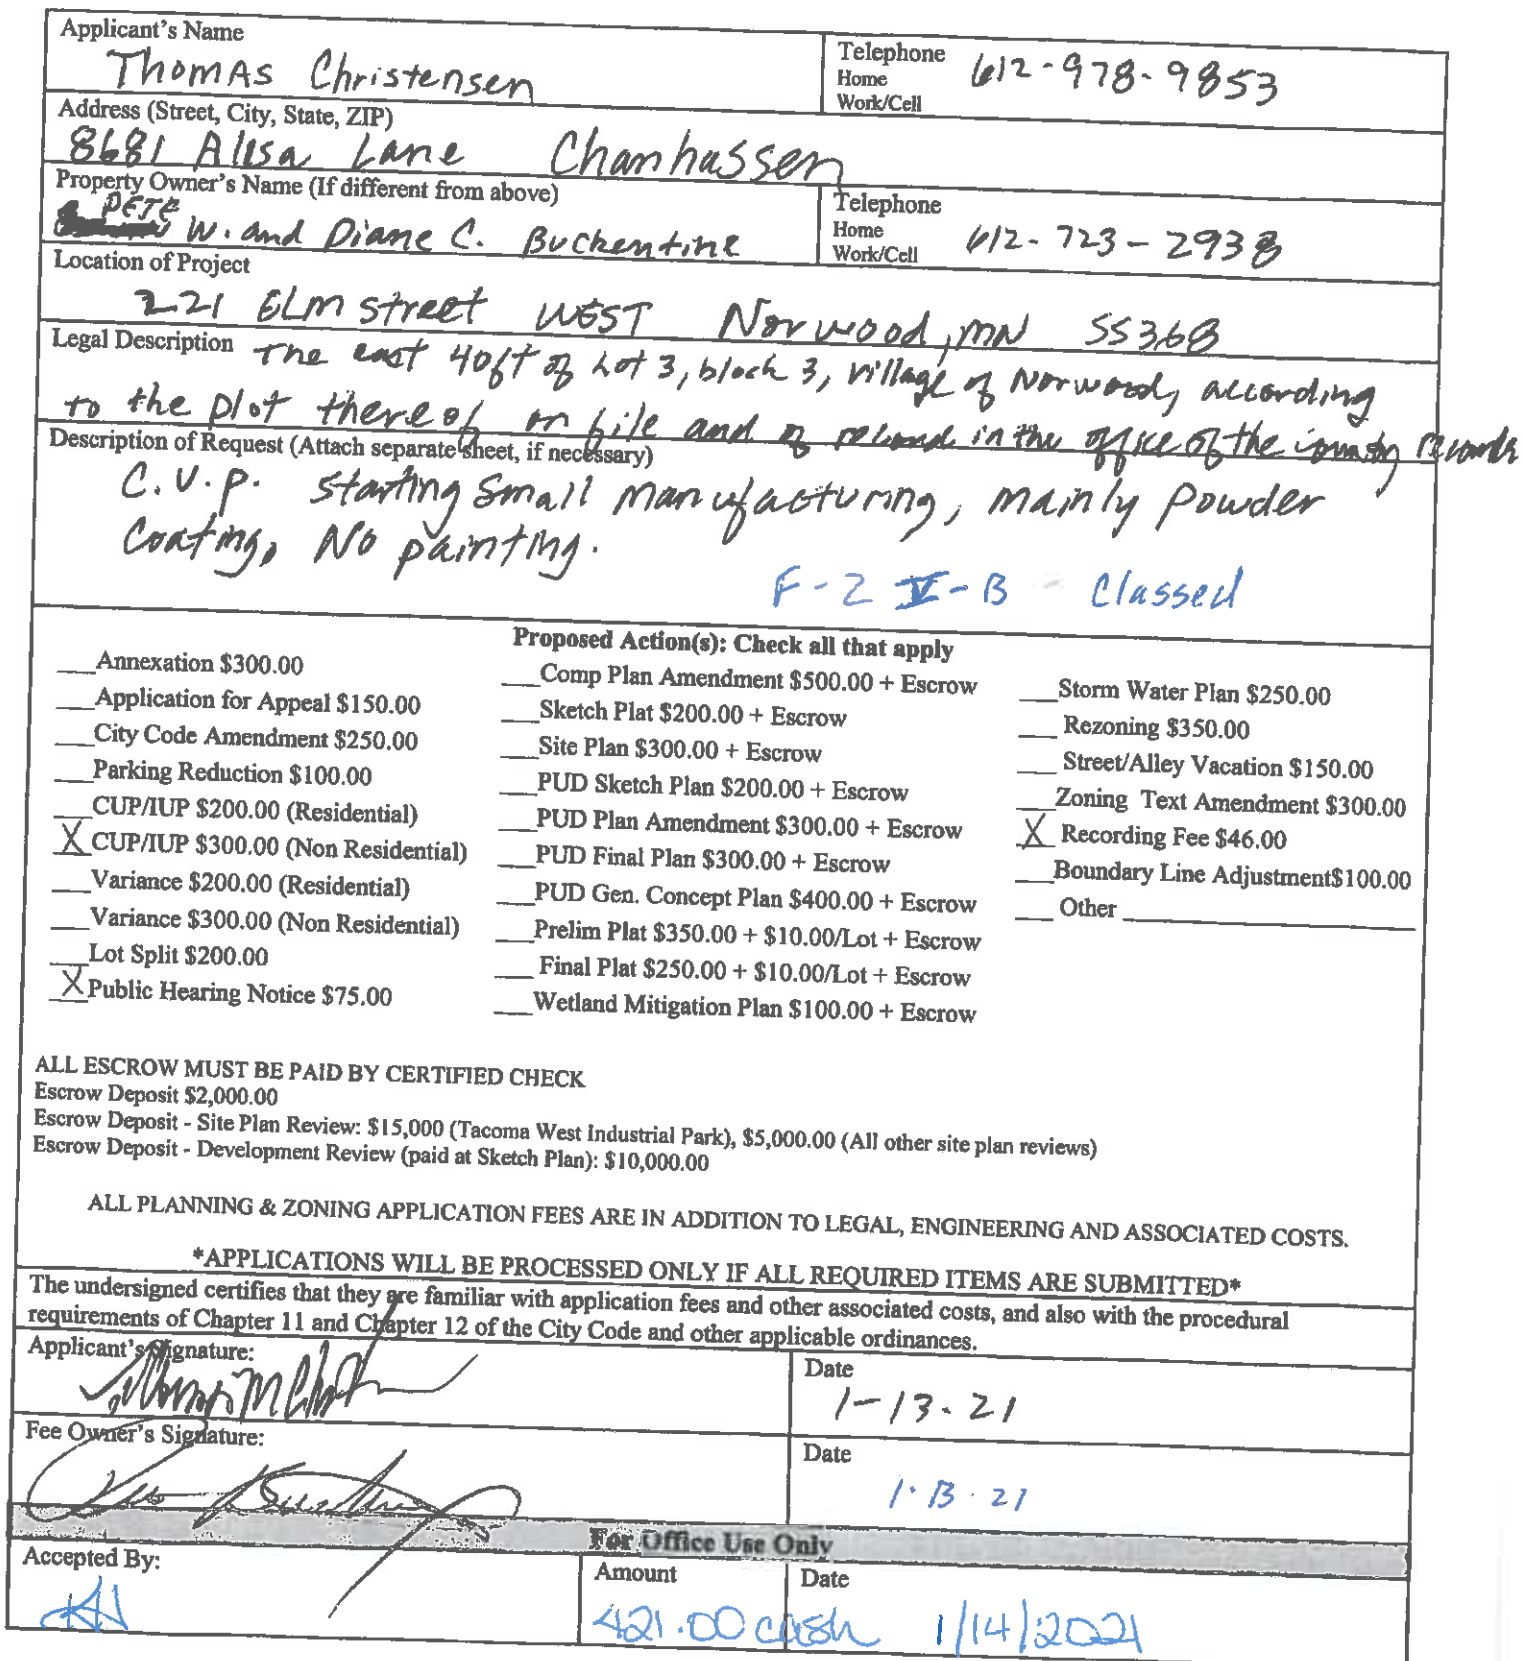 Applicant's Name
Thomas Christensen
Telephone
Home
Work/Cell
612-978-9853
Address (Street, City, State, ZIP)
8681 Alisa Lane Chanhassen
Property Owner's Name (If different from above)
PETE W. and Diane C. Buckentine
Telephone
Home
Work/Cell
612-723-2938
Location of Project
221 ELM street WEST Norwood, MN 55368
Legal Description
The east 40ft of Lot 3, block 3, village of Norwood, according
to the plot thereof on file and of record in the office of the county records
Description of Request (Attach separate sheet, if necessary)
C.U.P. starting small manufacturing, mainly powder
coating, No painting.
F-2 V-B - Classed
Proposed Action(s): Check all that apply
___Annexation $300.00
___Application for Appeal $150.00
___City Code Amendment $250.00
___Parking Reduction $100.00
___CUP/IUP $200.00 (Residential)
X CUP/IUP $300.00 (Non Residential)
___Variance $200.00 (Residential)
___Variance $300.00 (Non Residential)
___Lot Split $200.00
X Public Hearing Notice $75.00
___Comp Plan Amendment $500.00 + Escrow
___Sketch Plat $200.00 + Escrow
___Site Plan $300.00 + Escrow
___PUD Sketch Plan $200.00 + Escrow
___PUD Plan Amendment $300.00 + Escrow
___PUD Final Plan $300.00 + Escrow
___PUD Gen. Concept Plan $400.00 + Escrow
___Prelim Plat $350.00 + $10.00/Lot + Escrow
___Final Plat $250.00 + $10.00/Lot + Escrow
___Wetland Mitigation Plan $100.00 + Escrow
___Storm Water Plan $250.00
___Rezoning $350.00
___Street/Alley Vacation $150.00
___Zoning Text Amendment $300.00
X Recording Fee $46.00
___Boundary Line Adjustment$100.00
___Other ____________
ALL ESCROW MUST BE PAID BY CERTIFIED CHECK
Escrow Deposit $2,000.00
Escrow Deposit - Site Plan Review: $15,000 (Tacoma West Industrial Park), $5,000.00 (All other site plan reviews)
Escrow Deposit - Development Review (paid at Sketch Plan): $10,000.00
ALL PLANNING & ZONING APPLICATION FEES ARE IN ADDITION TO LEGAL, ENGINEERING AND ASSOCIATED COSTS.
*APPLICATIONS WILL BE PROCESSED ONLY IF ALL REQUIRED ITEMS ARE SUBMITTED*
The undersigned certifies that they are familiar with application fees and other associated costs, and also with the procedural
requirements of Chapter 11 and Chapter 12 of the City Code and other applicable ordinances.
Applicant's Signature:
Date
1-13-21
Fee Owner's Signature:
Date
1-13-21
For Office Use Only
Accepted By:
KH
Amount
421.00 cash
Date
1/14/2021